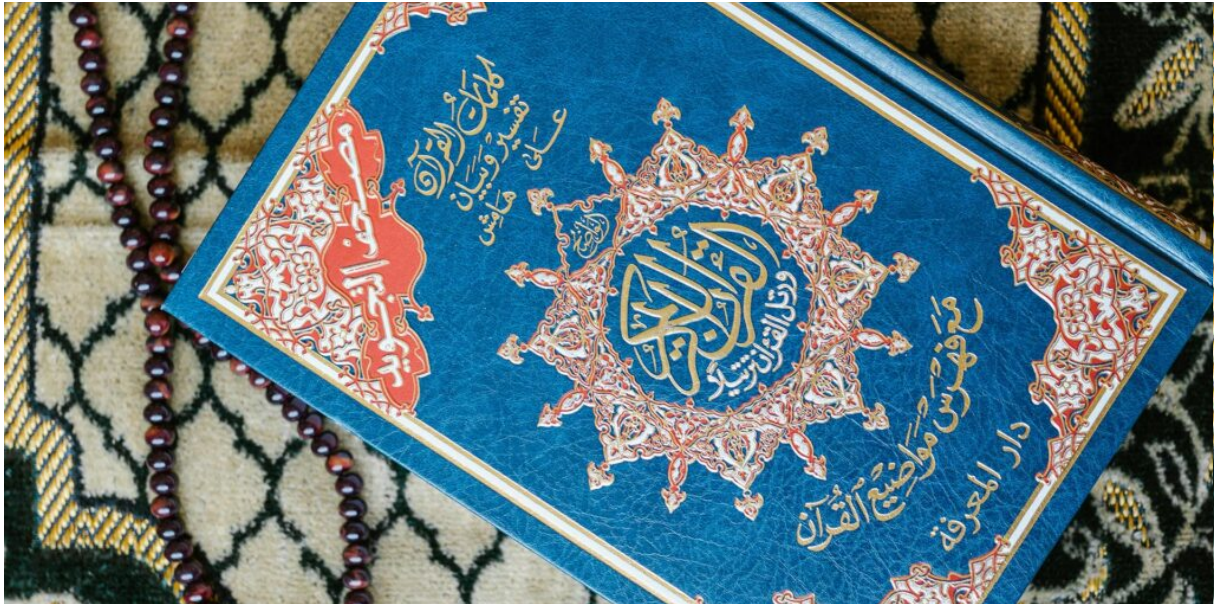 مصحف التجويد
كلمات القرآن
تفسير وبيان
على هامش
الواضح
القرآن الكريم
ورتل القرآن ترتيلا
مع فهرس مواضيع القرآن
دار المعرفة